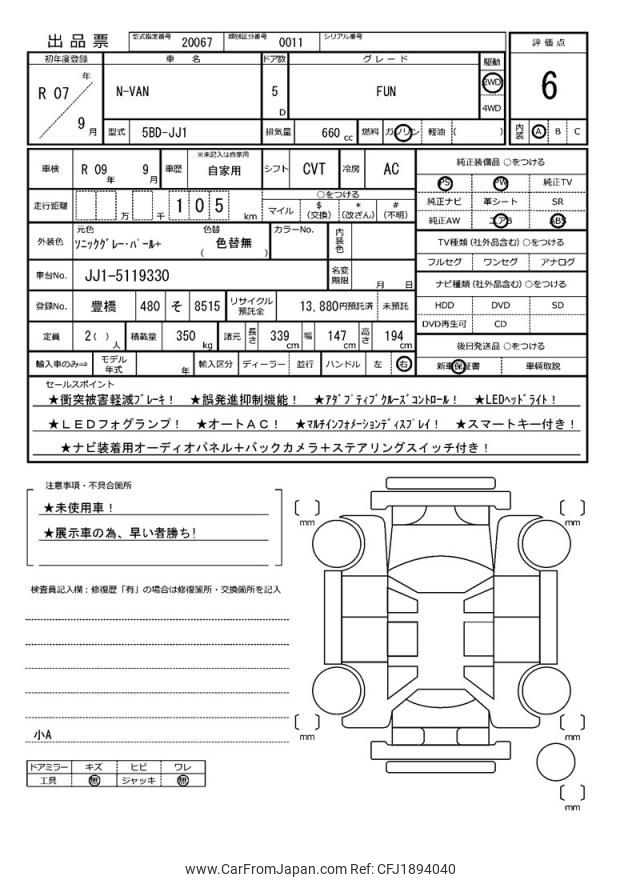 出品票
型式指定番号 20067 類別区分番号 0011 シリアル番号
評価点
6
内装 A B C
初年度登録 車名 ドア数 グレード 駆動
R 07 年 9 月
N-VAN 5 D FUN 2WD 4WD
型式 5BD-JJ1 排気量 660 cc 燃料 ガソリン 軽油 ( )
車検 R 09 年 9 月 車歴 ※未記入は自家用 自家用 シフト CVT 冷房 AC
走行距離 万 千 1 0 5 km
○をつける
マイル $(交換) *(改ざん) #(不明)
外装色 元色 ソニックグレー・パール+ 色替 ( 色替無 ) カラーNo. 内装色
車台No. JJ1-5119330 名変期限 月 日
登録No. 豊橋 480 そ 8515 リサイクル預託金 13,880円預託済 未預託
定員 2( ) 人 積載量 350 kg 諸元 長さ 339 cm 幅 147 cm 高さ 194 cm
輸入車のみ⇒ モデル年式 年 輸入区分 ディーラー 並行 ハンドル 左 右
純正装備品 ○をつける
PS PW 純正TV
純正ナビ 革シート SR
純正AW エアB ABS
TV種類 (社外品含む) ○をつける
フルセグ ワンセグ アナログ
ナビ種類 (社外品含む) ○をつける
HDD DVD SD
DVD再生可 CD
後日発送品 ○をつける
新車保証書 車輌取説
セールスポイント
★衝突被害軽減ブレーキ! ★誤発進抑制機能! ★アダプティブクルーズコントロール! ★LEDヘッドライト!
★LEDフォグランプ! ★オートAC! ★マルチインフォメーションディスプレイ! ★スマートキー付き!
★ナビ装着用オーディオパネル+バックカメラ+ステアリングスイッチ付き!
注意事項・不具合箇所
★未使用車!
★展示車の為、早い者勝ち!
検査員記入欄:修復歴「有」の場合は修復箇所・交換箇所を記入
小A
ドアミラー キズ ヒビ ワレ
工具 無 ジャッキ 無
mm
mm
mm
mm
mm
www.CarFromJapan.com Ref: CFJ1894040